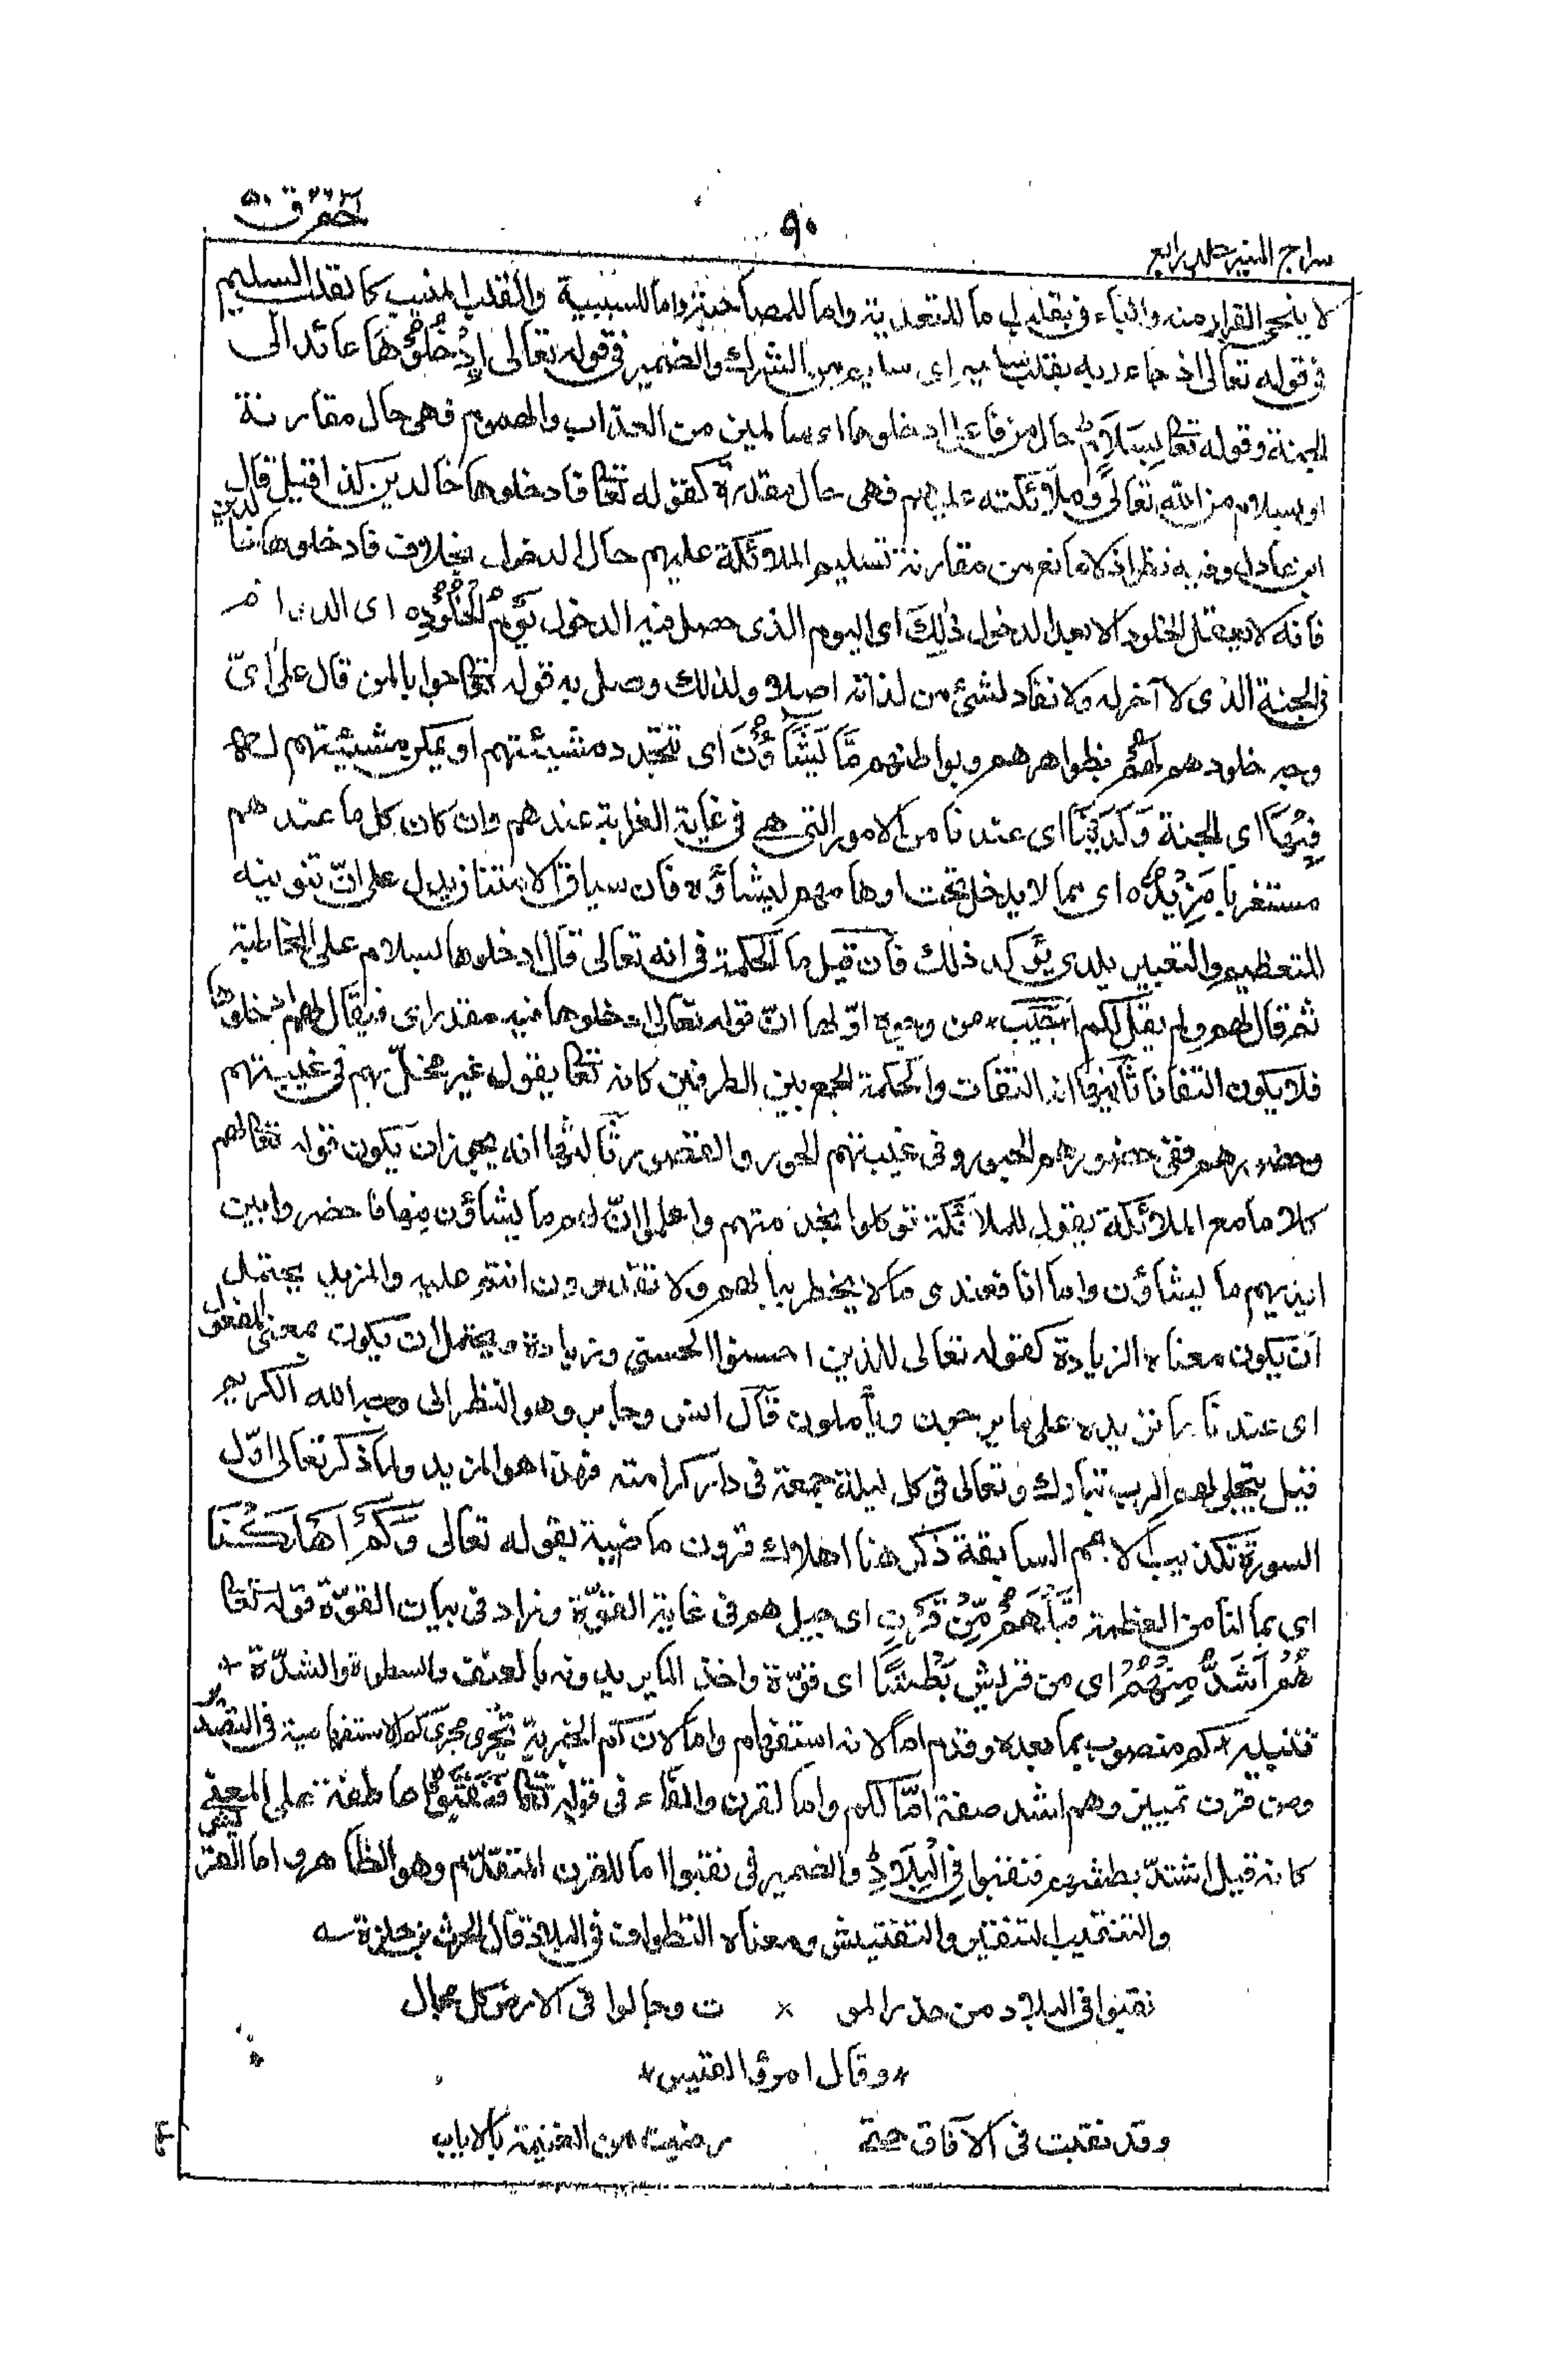 سراج المنير جلد رابع
٩٠
حٰمٓ ق ٥٠
لا ينجى الفرار منه والباء فى بقلب اما للتعدية واما للمصاحبة واما للسببية والقلب المنيب كالقلب السليم
فى قوله تعالى اذ جاء ربه بقلب سليم اى سليم من الشرك والضمير فى قوله تعالى اُدْخُلُوْهَا عائد الى
الجنة وقوله تعالى بِسَلَامٍ حال من فاعل ادخلوها اى سالمين من العذاب والهموم فهى حال مقارنة
او بسلام من الله تعالى وملائكته عليهم فهى حال مقدرة كقوله تعالى فادخلوها خالدين كذا قيل قال
ابن عادل وفيه نظر اذ لا مانع من مقارنة تسليم الملائكة عليهم حال الدخول بخلاف فادخلوها خالدين
فانه لا يعقل الخلود الا بعد الدخول ذٰلِكَ اى اليوم الذى حصل فيه الدخول يَوْمُ الْخُلُوْدِ ه اى الدائم
فى الجنة الذى لا آخر له ولا نفاد لشئ من لذاته اصلا ولذلك وصل به قوله تعالى جوابا لمن قال على اىّ
وجه خلودهم لَهُمْ بظواهرهم وبواطنهم مَّا يَشَآؤُنَ اى تتجدد مشيئتهم او يمكن مشيئتهم له
فِيْهَا اى الجنة وَلَدَيْنَا اى عندنا من الامور التى هى فى غاية الغرابة عندهم وان كان كل ما عندهم
مستغربا مَزِيْدٌ ه اى مما لا يدخل تحت اوهامهم ليشاؤه فان سياق الامتنان يدل على انّ تنوينه
للتعظيم والتعبير بلدى يؤكد ذلك فان قيل ما الحكمة فى انه تعالى قال ادخلوها بسلام على المخاطبة
ثم قال لهم ولم يقل لكم اجيب من وجوه اوّلها انّ قوله تعالى ادخلوها فيه مقدر اى فيقال لهم ادخلوها
فلا يكون التفاتا ثانيها انه التفات والحكمة الجمع بين الطرفين كانه تعالى يقول غير مخلّ بهم فى غيبتهم
وحضورهم ففى حضورهم الحبور وفى غيبتهم الحور والقصور ثالثها انه يجوز ان يكون قوله تعالى لهم
كلاما مع الملائكة يقول للملائكة توكلوا بخدمتهم واعلموا انّ لهم ما يشاؤن فيها فاحضروا بين
ايديهم ما يشاؤن واما انا فعندى ما لا يخطر ببالهم ولا تقدرون انتم عليه والمزيد يحتمل
ان يكون معناه الزيادة كقوله تعالى للذين احسنوا الحسنى وزيادة ويحتمل ان يكون بمعنى المفعول
اى عندنا ما نزيده على ما يرجون ويأملون قال انس وجابر وهو النظر الى وجه الله الكريم
قيل يتجلى لهم الرب تبارك وتعالى فى كل ليلة جمعة فى دار كرامته فهذا هو المزيد ولما ذكر تعالى اوّل
السورة تكذيب الامم السابقة ذكر هنا اهلاك قرون ماضية بقوله تعالى وَكَمْ اَهْلَكْنَا
اى بما لنا من العظمة قَبْلَهُمْ مِّنْ قَرْنٍ اى جيل هم فى غاية القوّة وزاد فى بيان القوّة قوله تعالى
هُمْ اَشَدُّ مِنْهُمْ اى من قريش بَطْشًا اى قوّة واخذ الما يريدونه بالعنف والسطوة والشدّة ×
تنبيه × كم منصوب بما بعده وقدم اما لانه استفهام واما لان كم الخبرية تجرى مجرى كم الاستفهامية فى التصدّر
ومن قرن تمييز وهم اشد صفة امّا لكم واما لقرن والفاء فى قوله تعالى فَنَقَّبُوْا عاطفة على المعنى
كانه قيل اشتدّ بطشهم فنقبوا فِى الْبِلَادِ والضمير فى نقبوا اما للقرن المتقدّم وهو الظاهر واما لقريش
والتنقيب التنقير والتفتيش ومعناه التطواف فى البلاد قال الحرث بن حلزة سه
نقبوا فى البلاد من حذر المو × ت وجالوا فى الارض كل مجال
× وقال امرؤ القيس ×
وقد نقبت فى الآفاق حتى رضيت من الغنيمة بالاياب